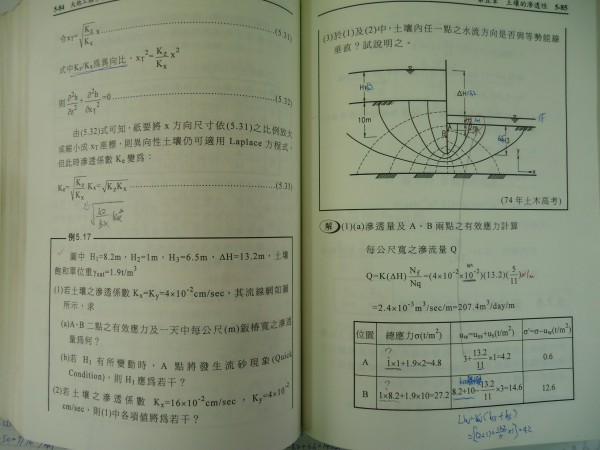 5-84
令xT=√(Kz/Kx) x …(5.31)
式中Kz/Kx為異向比，xT²=(Kz/Kx)x²
則∂²h/∂z²+∂²h/∂xT²=0 …(5.32)
由(5.32)式可知，祇要將 x 方向尺寸依(5.31)之比例放大
或縮小成 xT 座標，則異向性土壤仍可適用 Laplace 方程式，
但此時滲透係數 Ke 變為：
Ke=√(Kz/Kx) Kx=√(KzKx) …(5.33)
例5.17
圖中 H1=8.2m，H2=1m，H3=6.5m，ΔH=13.2m，土壤
飽和單位重γsat=1.9t/m³
(1)若土壤之滲透係數 Kx=Ky=4×10⁻²cm/sec，其流線網如圖
所示，求
(a)A、B二點之有效應力及一天中每公尺(m)鈑樁寬之滲透
量為何？
(b)若 H1 有所變動時，A 點將發生流砂現象(Quick
Condition)，則 H1 應為若干？
(2)若土壤之滲透係數 Kx=16×10⁻²cm/sec，Ky=4×10⁻²
cm/sec，則(1)中各項值將爲若干？
土壤的滲透性 5-85
(3)於(1)及(2)中，土壤內任一點之水流方向是否與等勢能線
垂直？試說明之。
ΔH
10m
A
B
(74 年土木高考)
解 (1)(a)滲透量及 A、B 兩點之有效應力計算
每公尺寬之滲流量 Q
Q=K(ΔH)Nf/Nq=(4×10⁻²×10⁻²)(13.2)(5/11)
=2.4×10⁻³m³/sec/m=207.4m³/day/m
位置 總應力σ(t/m²) uw=uws+us(t/m²) σ'=σ-uw(t/m²)
A 1×1+1.9×2=4.8 3+13.2/11×1=4.2 0.6
B 1×8.2+1.9×10=27.2 8.2+10-13.2/11×3=14.6 12.6